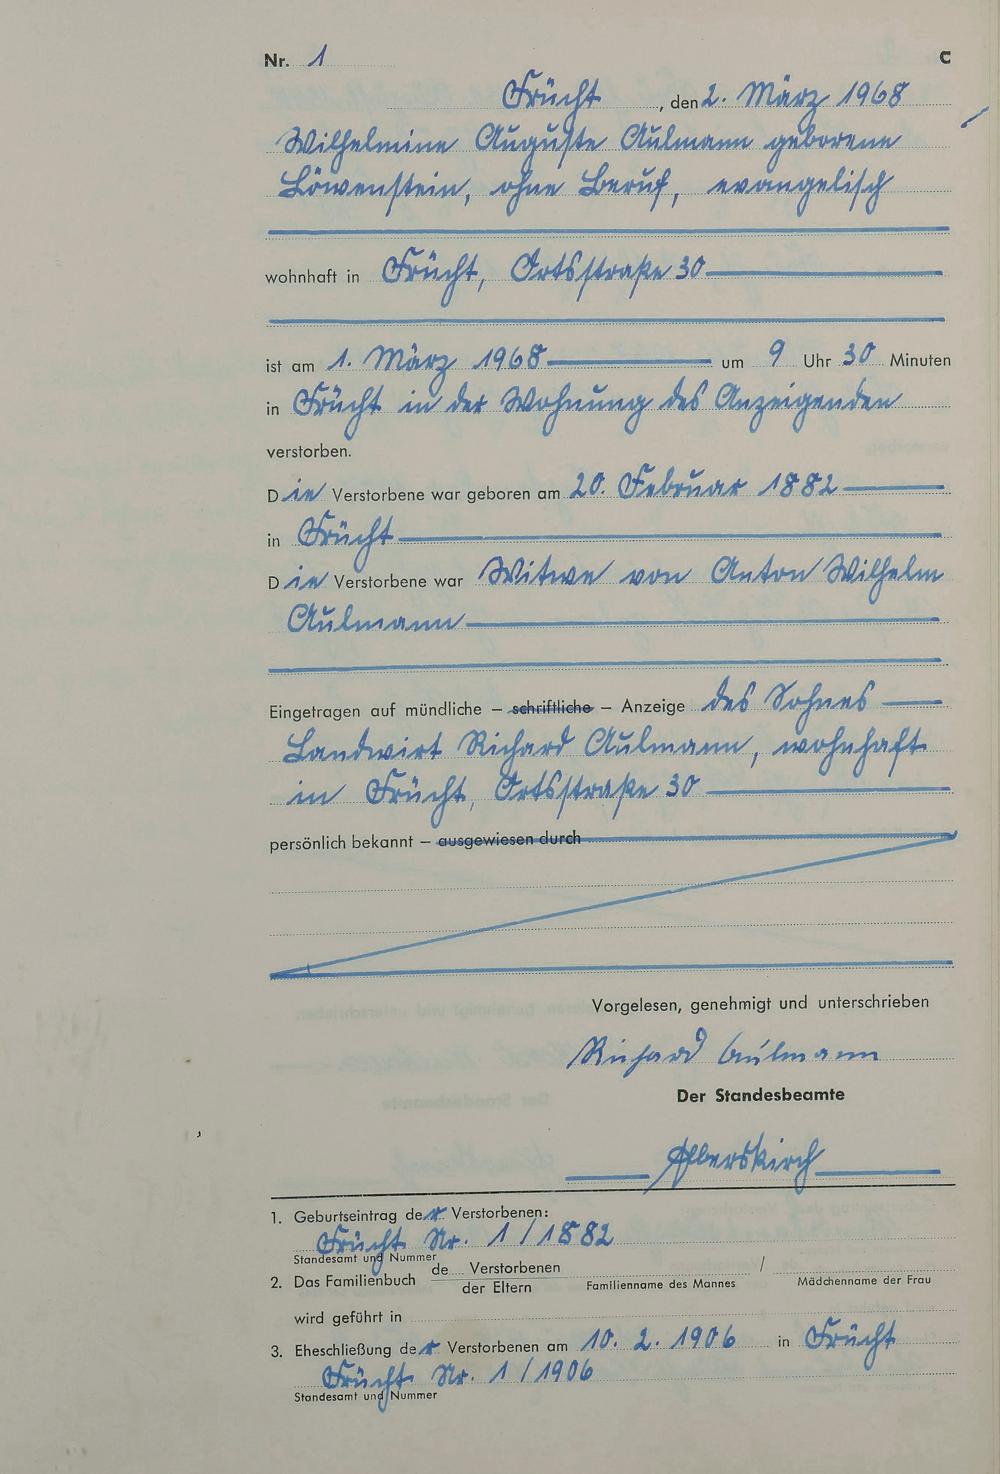 Nr. 1 C
Frücht, den 2. März 1968
Wilhelmine Auguste Aulmann geborene
Löwenstein, ohne Beruf, evangelisch
wohnhaft in Frücht, Ortsstraße 30
ist am 1. März 1968 um 9 Uhr 30 Minuten
in Frücht in der Wohnung des Anzeigenden
verstorben.
Die Verstorbene war geboren am 20. Februar 1882
in Frücht
Die Verstorbene war Witwe von Anton Wilhelm
Aulmann
Eingetragen auf mündliche – schriftliche – Anzeige des Sohnes
Landwirt Richard Aulmann, wohnhaft
in Frücht, Ortsstraße 30
persönlich bekannt – ausgewiesen durch
Vorgelesen, genehmigt und unterschrieben
Richard Aulmann
Der Standesbeamte
1. Geburtseintrag der Verstorbenen:
Frücht Nr. 1/1882
Standesamt und Nummer
de Verstorbenen /
2. Das Familienbuch der Eltern Familienname des Mannes Mädchenname der Frau
wird geführt in
3. Eheschließung der Verstorbenen am 10. 2. 1906 in Frücht
Frücht Nr. 1/1906
Standesamt und Nummer